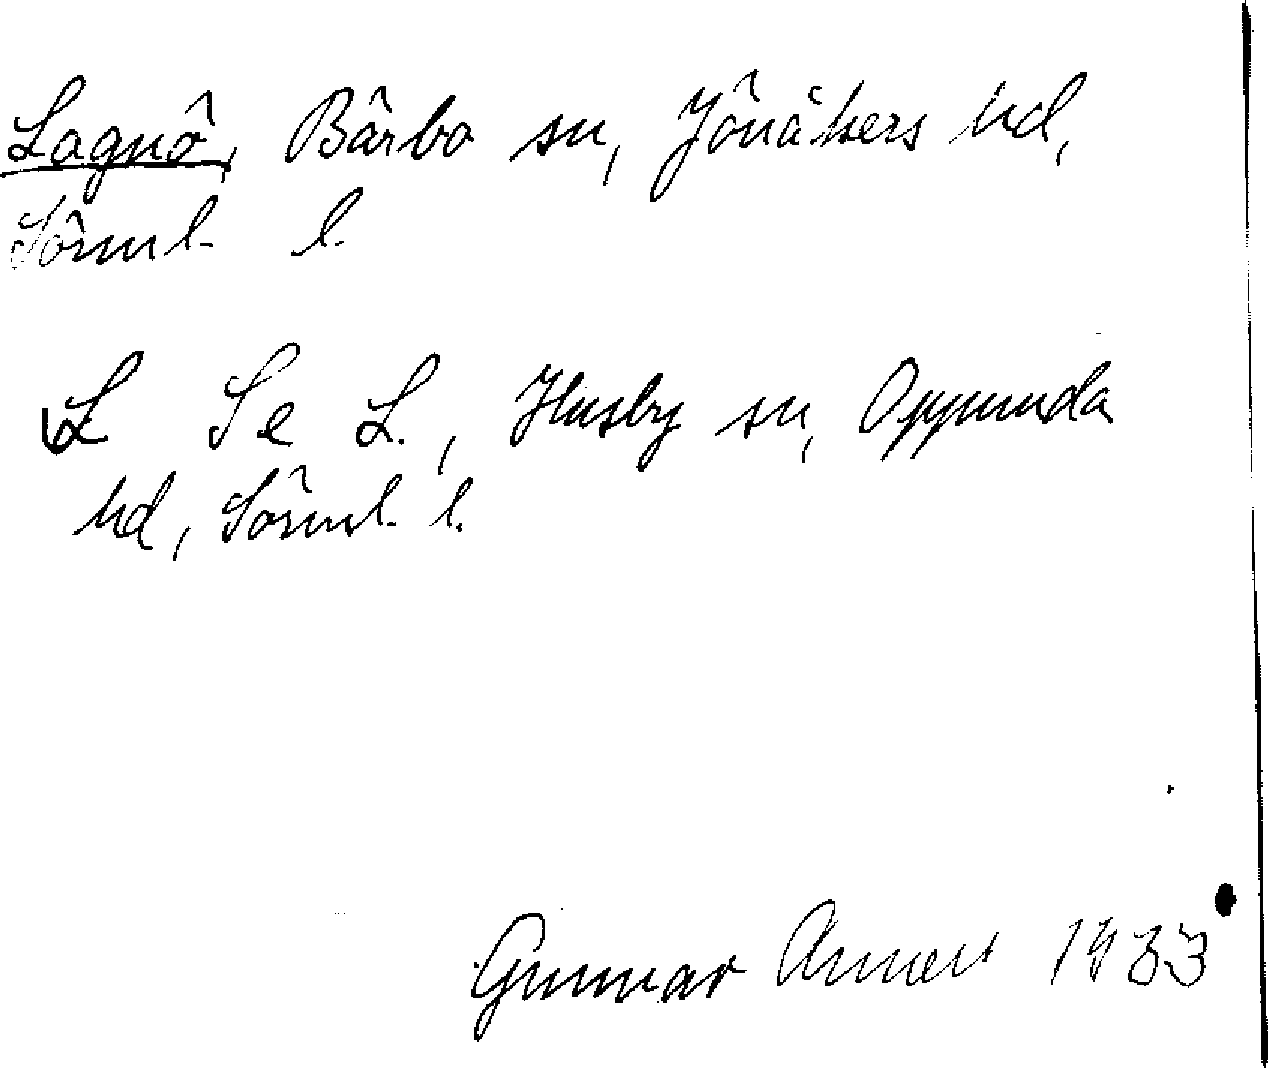 Lagnö, Bärbo sn, Jönåkers hd,
Sörml. l.
L Se L., Husby sn, Oppunda
hd, Sörml. l.
Gunnar Arnell 1933